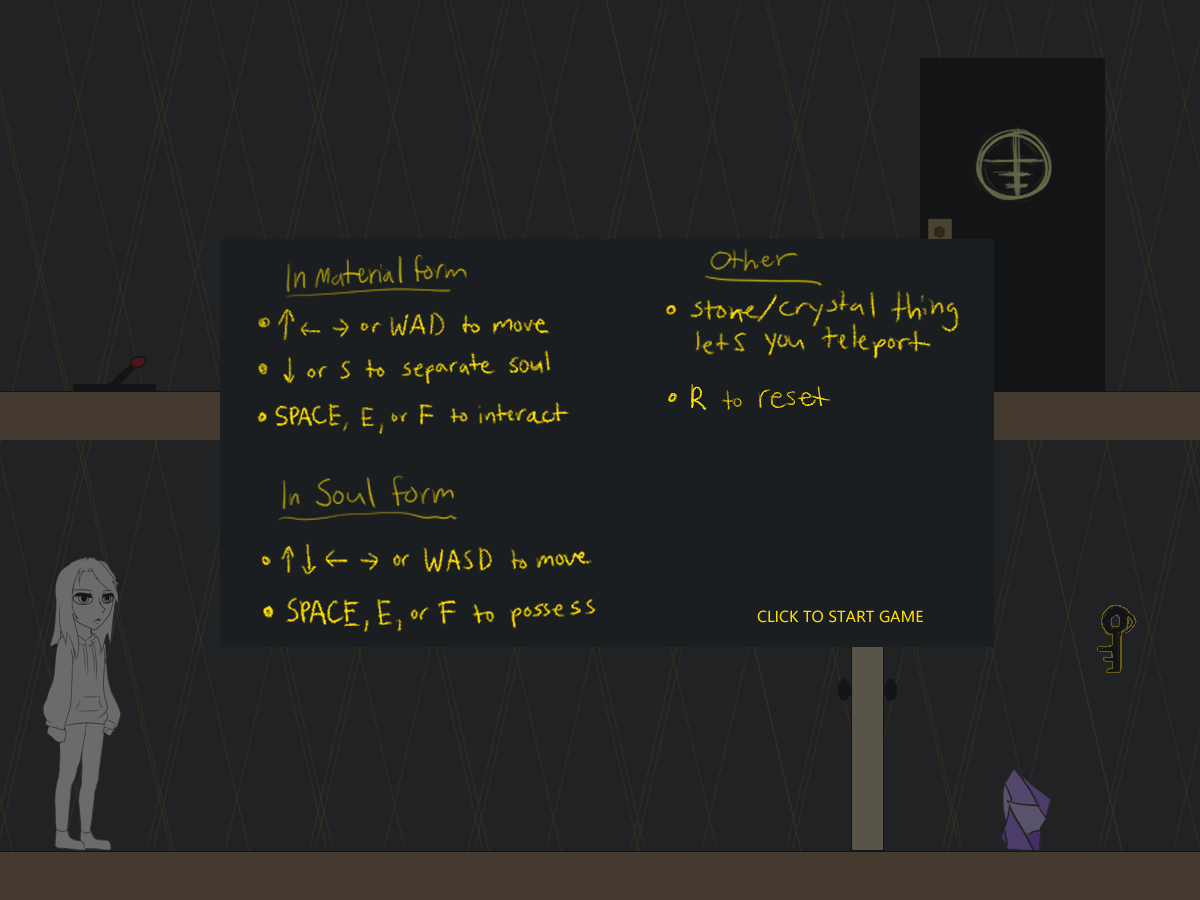 In Material form
• ↑ ← → or WAD to move
• ↓ or S to separate soul
• SPACE, E, or F to interact
In Soul form
• ↑ ↓ ← → or WASD to move
• SPACE, E, or F to possess
Other
• stone/crystal thing
lets you teleport
• R to reset
CLICK TO START GAME